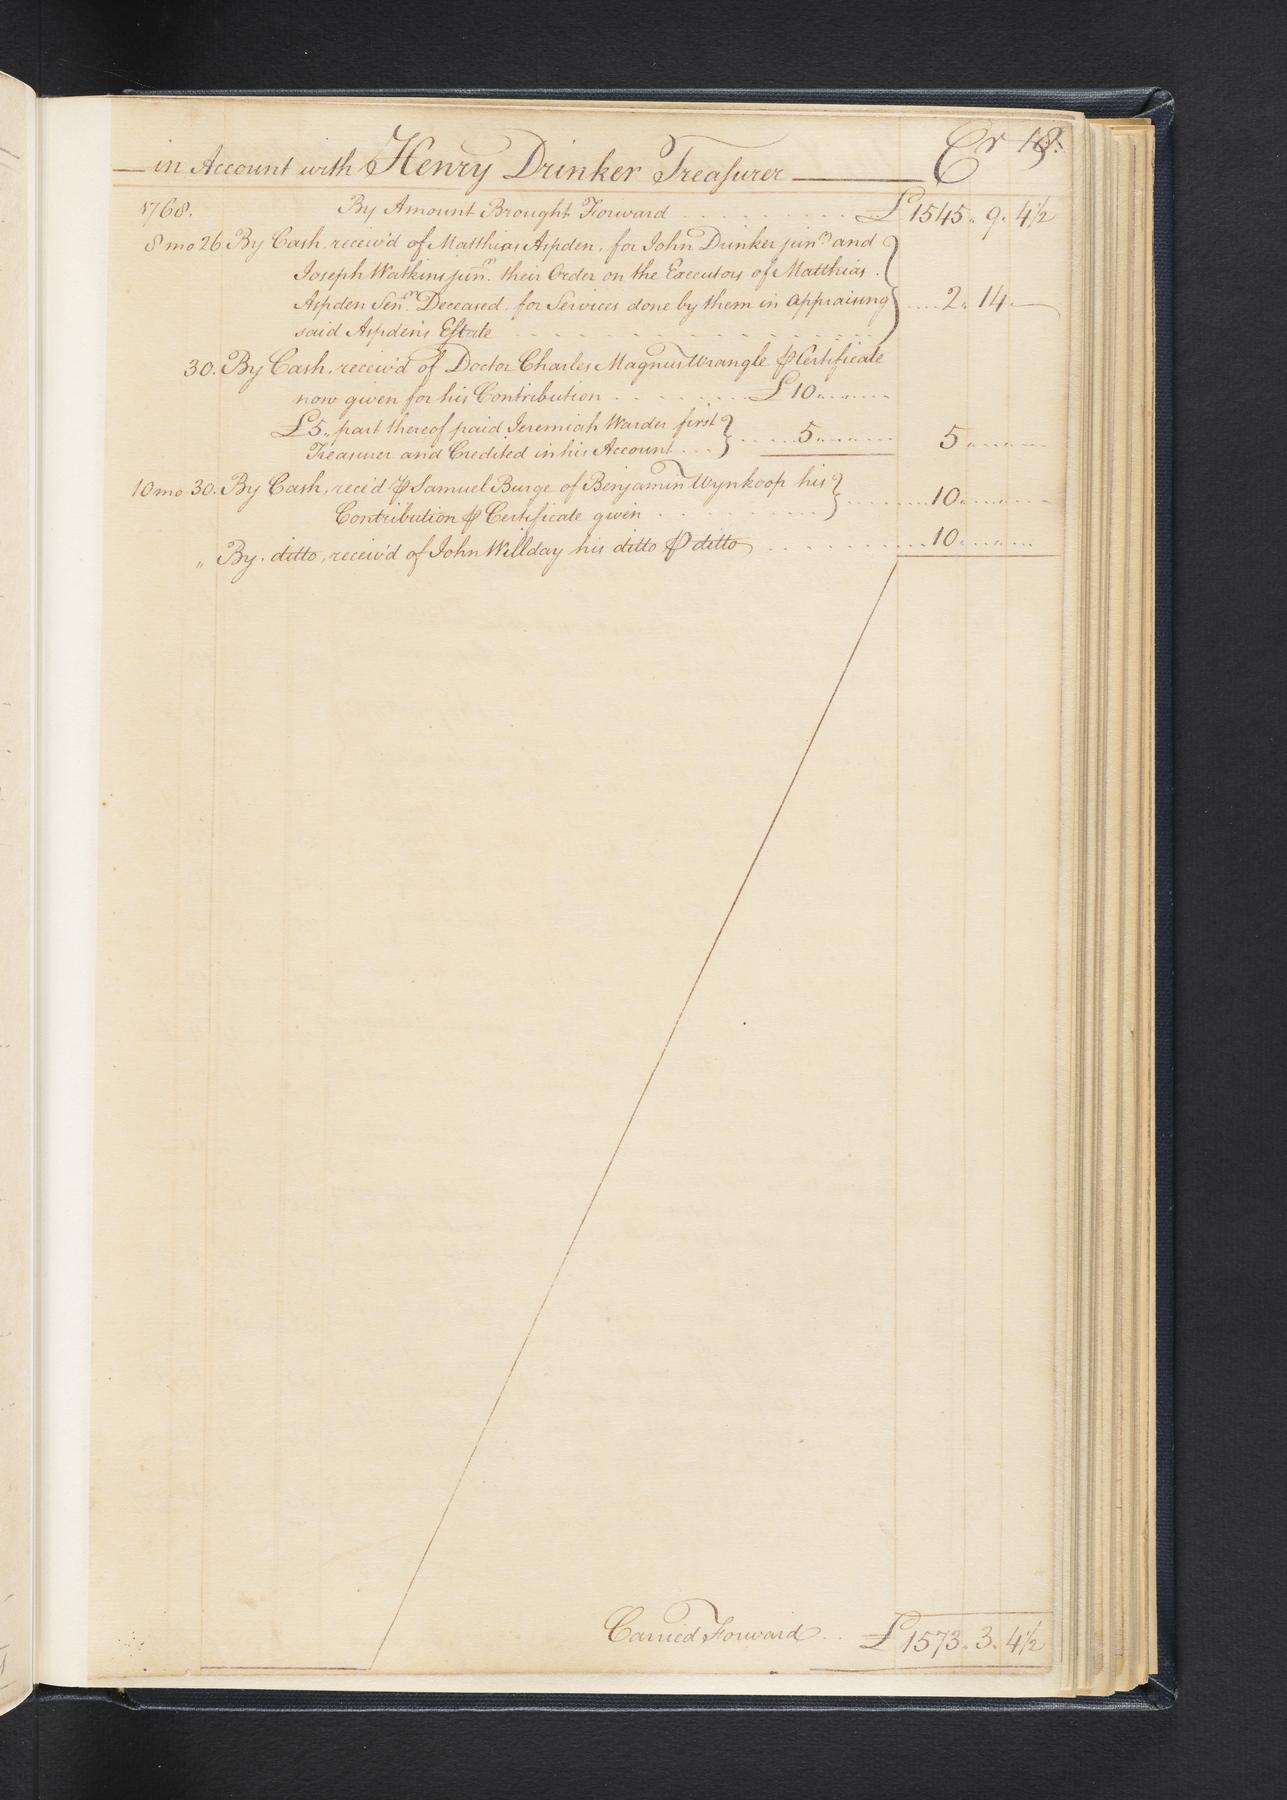 Cr 18.
in Account with Henry Drinker Treasurer
1768. By Amount Brought Forward £1545. 9. 4½
8mo 26 By Cash, receiv'd of Matthias Aspden, for John Drinker junr and
Joseph Watkins junr. their Order on the Executors of Matthias
Aspden Senr. Deceased, for Services done by them in appraising 2. 14.
said Aspden's Estate
30. By Cash, receiv'd of Doctor Charles Magnus Wrangle ⅌ Certificate
now given for his Contribution £10
£5,, part thereof paid Jeremiah Warder first 5 5
Treasurer and Credited in his Account
10mo. 30. By Cash, rece'd ⅌ Samuel Burge of Benjamin Wynkoop his 10
Contribution ⅌ Certificate given
„ By ditto, receiv'd of John Willday his ditto ⅌ ditto 10
Carried Forward £1573. 3. 4½